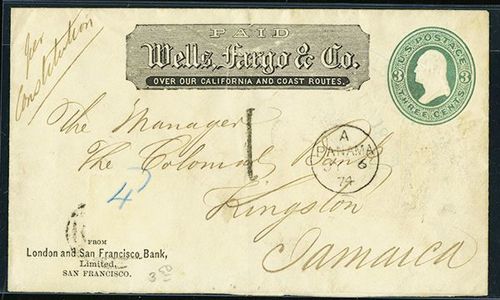 per
Constitution
PAID
Wells, Fargo & Co.
OVER OUR CALIFORNIA AND COAST ROUTES.
U.S. POSTAGE
3 3
THREE CENTS
The Manager
The Colonial Bank
Kingston
Jamaica
A
PANAMA
6
74
FROM
London and San Francisco Bank,
Limited,
SAN FRANCISCO.